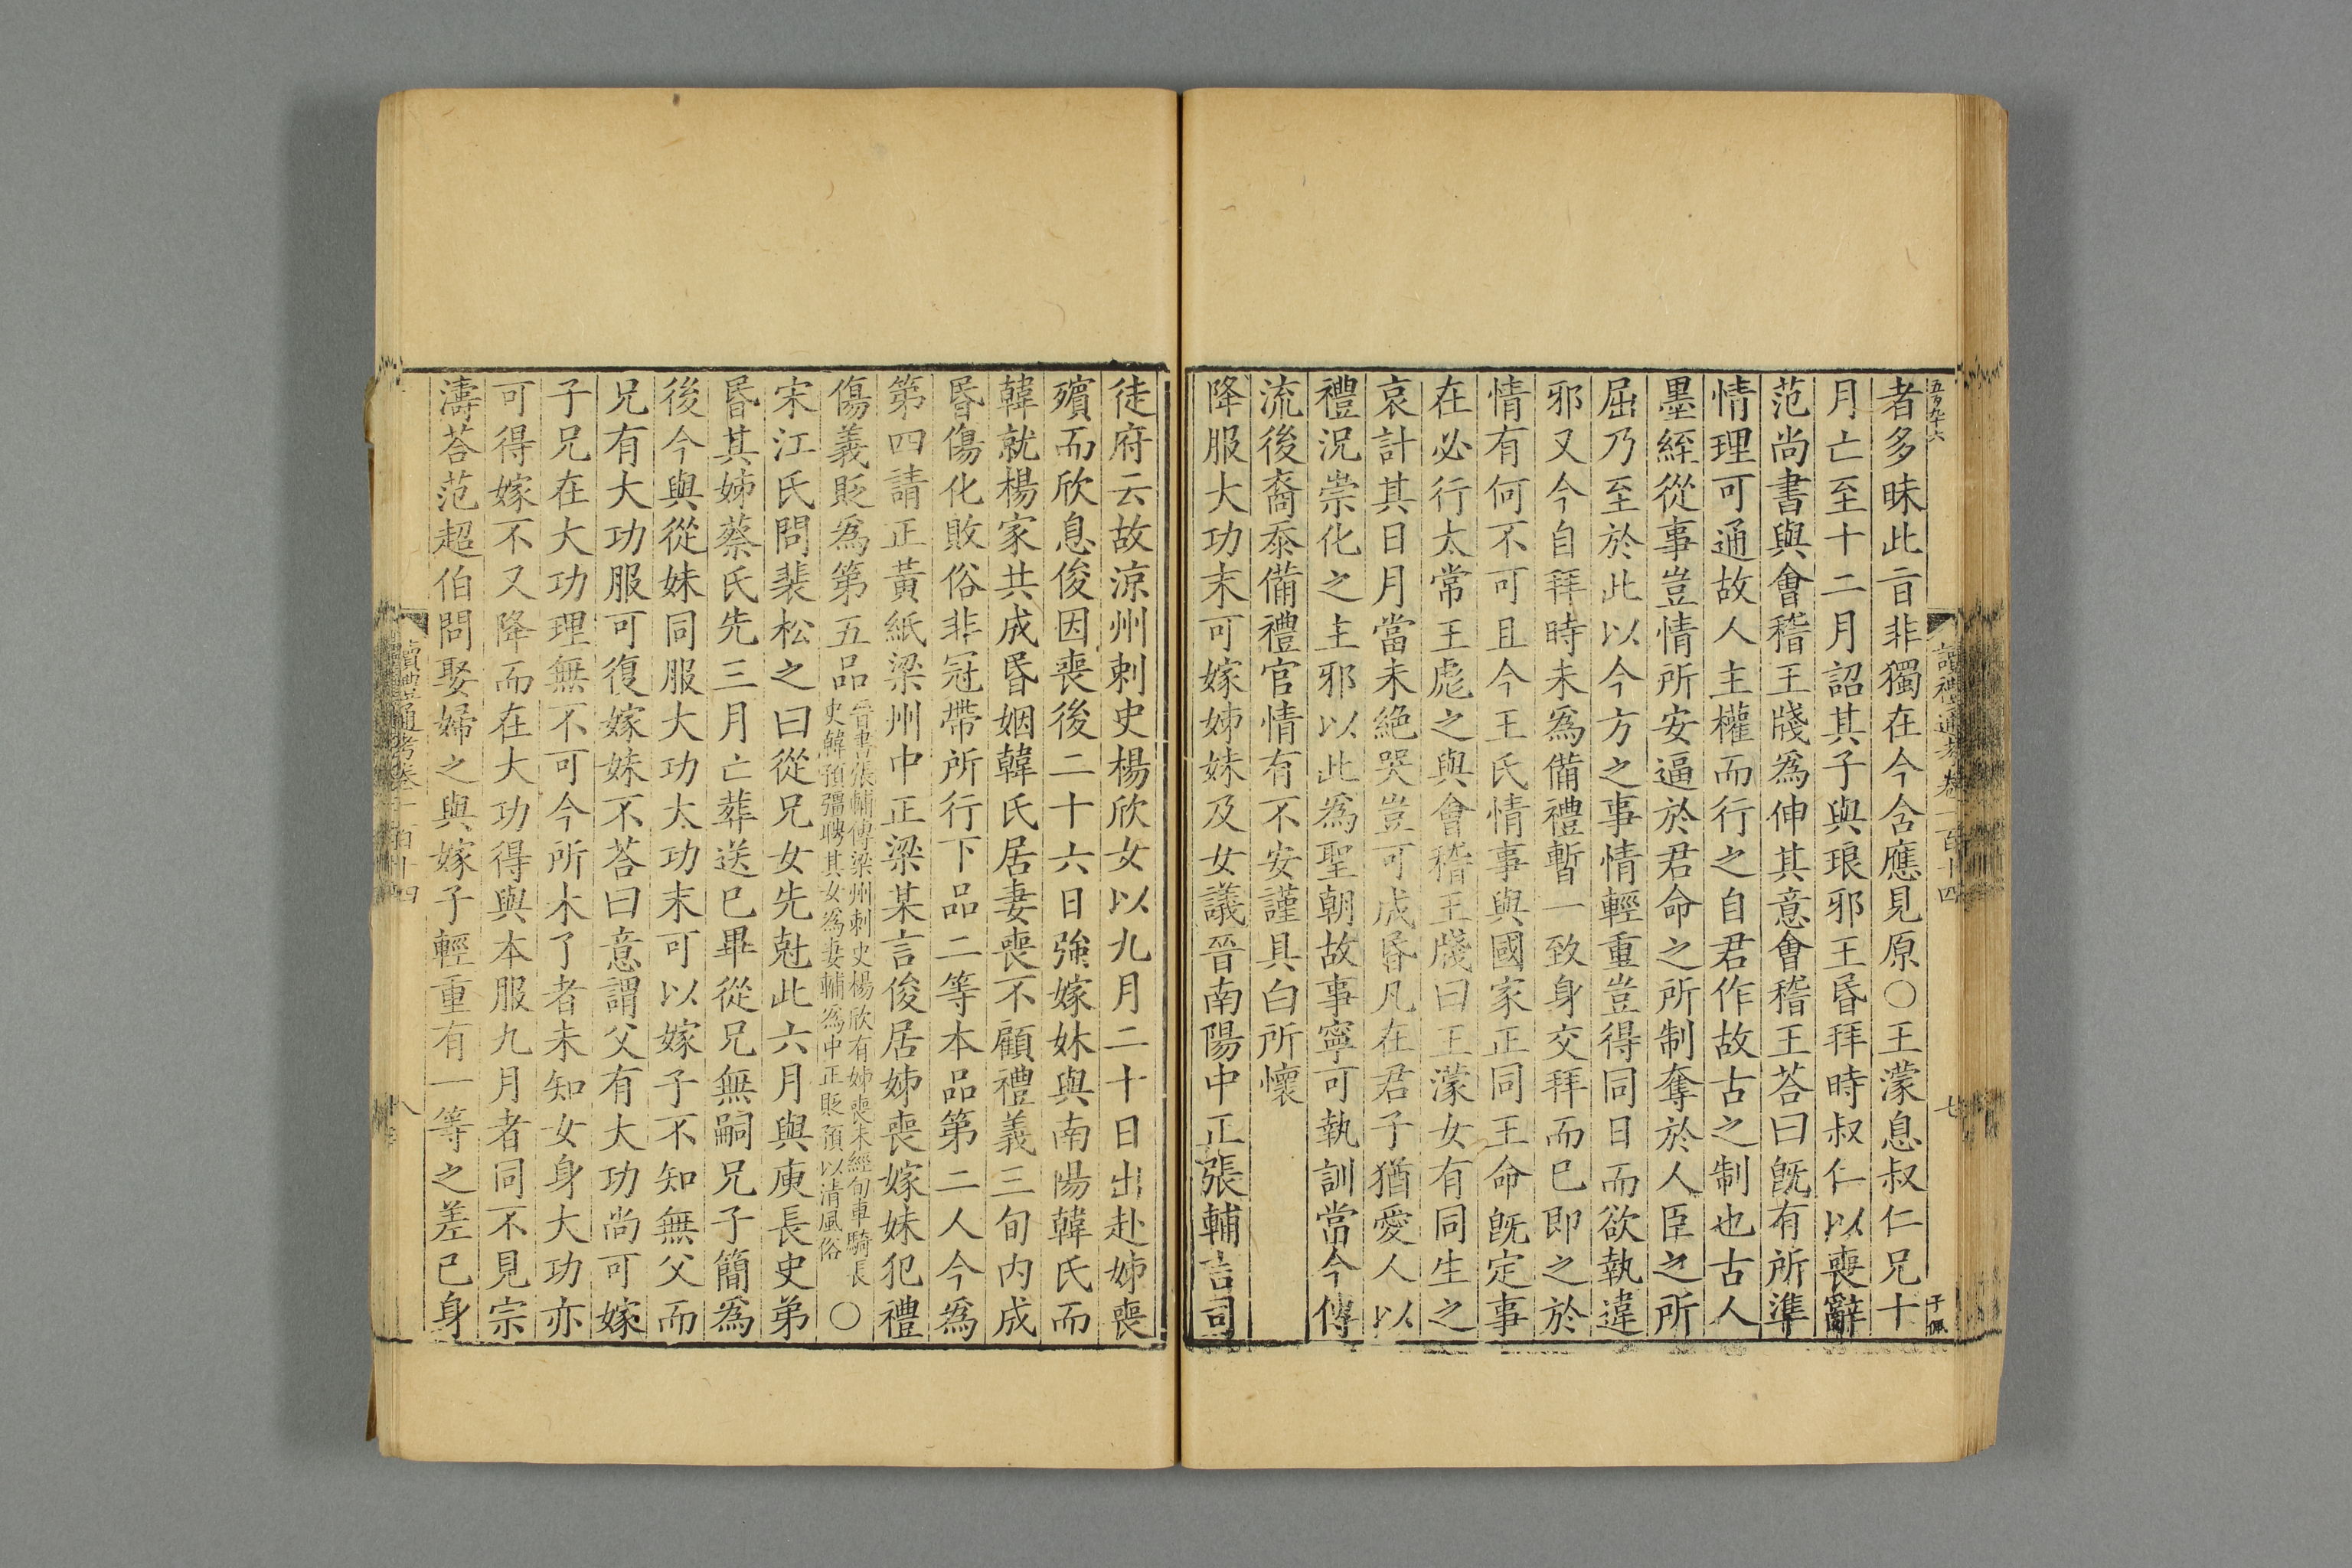 五百九十六
讀禮通考卷一百十四
七
子佩
者多昧此㫖非獨在今含應見原○王濛息叔仁兄十
月亡至十二月詔其子與琅邪王昏拜時叔仁以喪辭
范尚書與會稽王牋爲伸其意會稽王荅曰旣有所準
情理可通故人主權而行之自君作故古之制也古人
墨絰從事豈情所安逼於君命之所制奪於人臣之所
屈乃至於此以今方之事情輕重豈得同日而欲執違
邪又今自拜時未爲備禮暫一致身交拜而已即之於
情有何不可且今王氏情事與國家正同王命旣定事
在必行太常王彪之與會稽王牋曰王濛女有同生之
哀計其日月當未絶哭豈可成昏凡在君子猶愛人以
禮況崇化之主邪以此爲聖朝故事寧可執訓當今傳
流後裔忝備禮官情有不安謹具白所懷
降服大功末可嫁姊妹及女議晉南陽中正張輔言司
徒府云故涼州刺史楊欣女以九月二十日出赴姊喪
殯而欣息俊因喪後二十六日強嫁妹與南陽韓氏而
韓就楊家共成昏姻韓氏居妻喪不顧禮義三旬内成
昏傷化敗俗非冠帶所行下品二等本品第二人今爲
第四請正黃紙梁州中正梁某言俊居姊喪嫁妹犯禮
傷義貶爲第五品晉書張輔傳梁州刺史楊欣有姊喪未經旬車騎長
史韓預彊聘其女爲妻輔爲中正貶預以清風俗○
宋江氏問裴松之曰從兄女先尅此六月與庾長史弟
昏其姊蔡氏先三月亡葬送已畢從兄無嗣兄子簡爲
後今與從妹同服大功大功末可以嫁子不知無父而
兄有大功服可復嫁妹不荅曰意謂父有大功尚可嫁
子兄在大功理無不可今所未了者未知女身大功亦
可得嫁不又降而在大功得與本服九月者同不見宗
濤荅范超伯問娶婦之與嫁子輕重有一等之差已身
讀禮通考卷一百十四
八